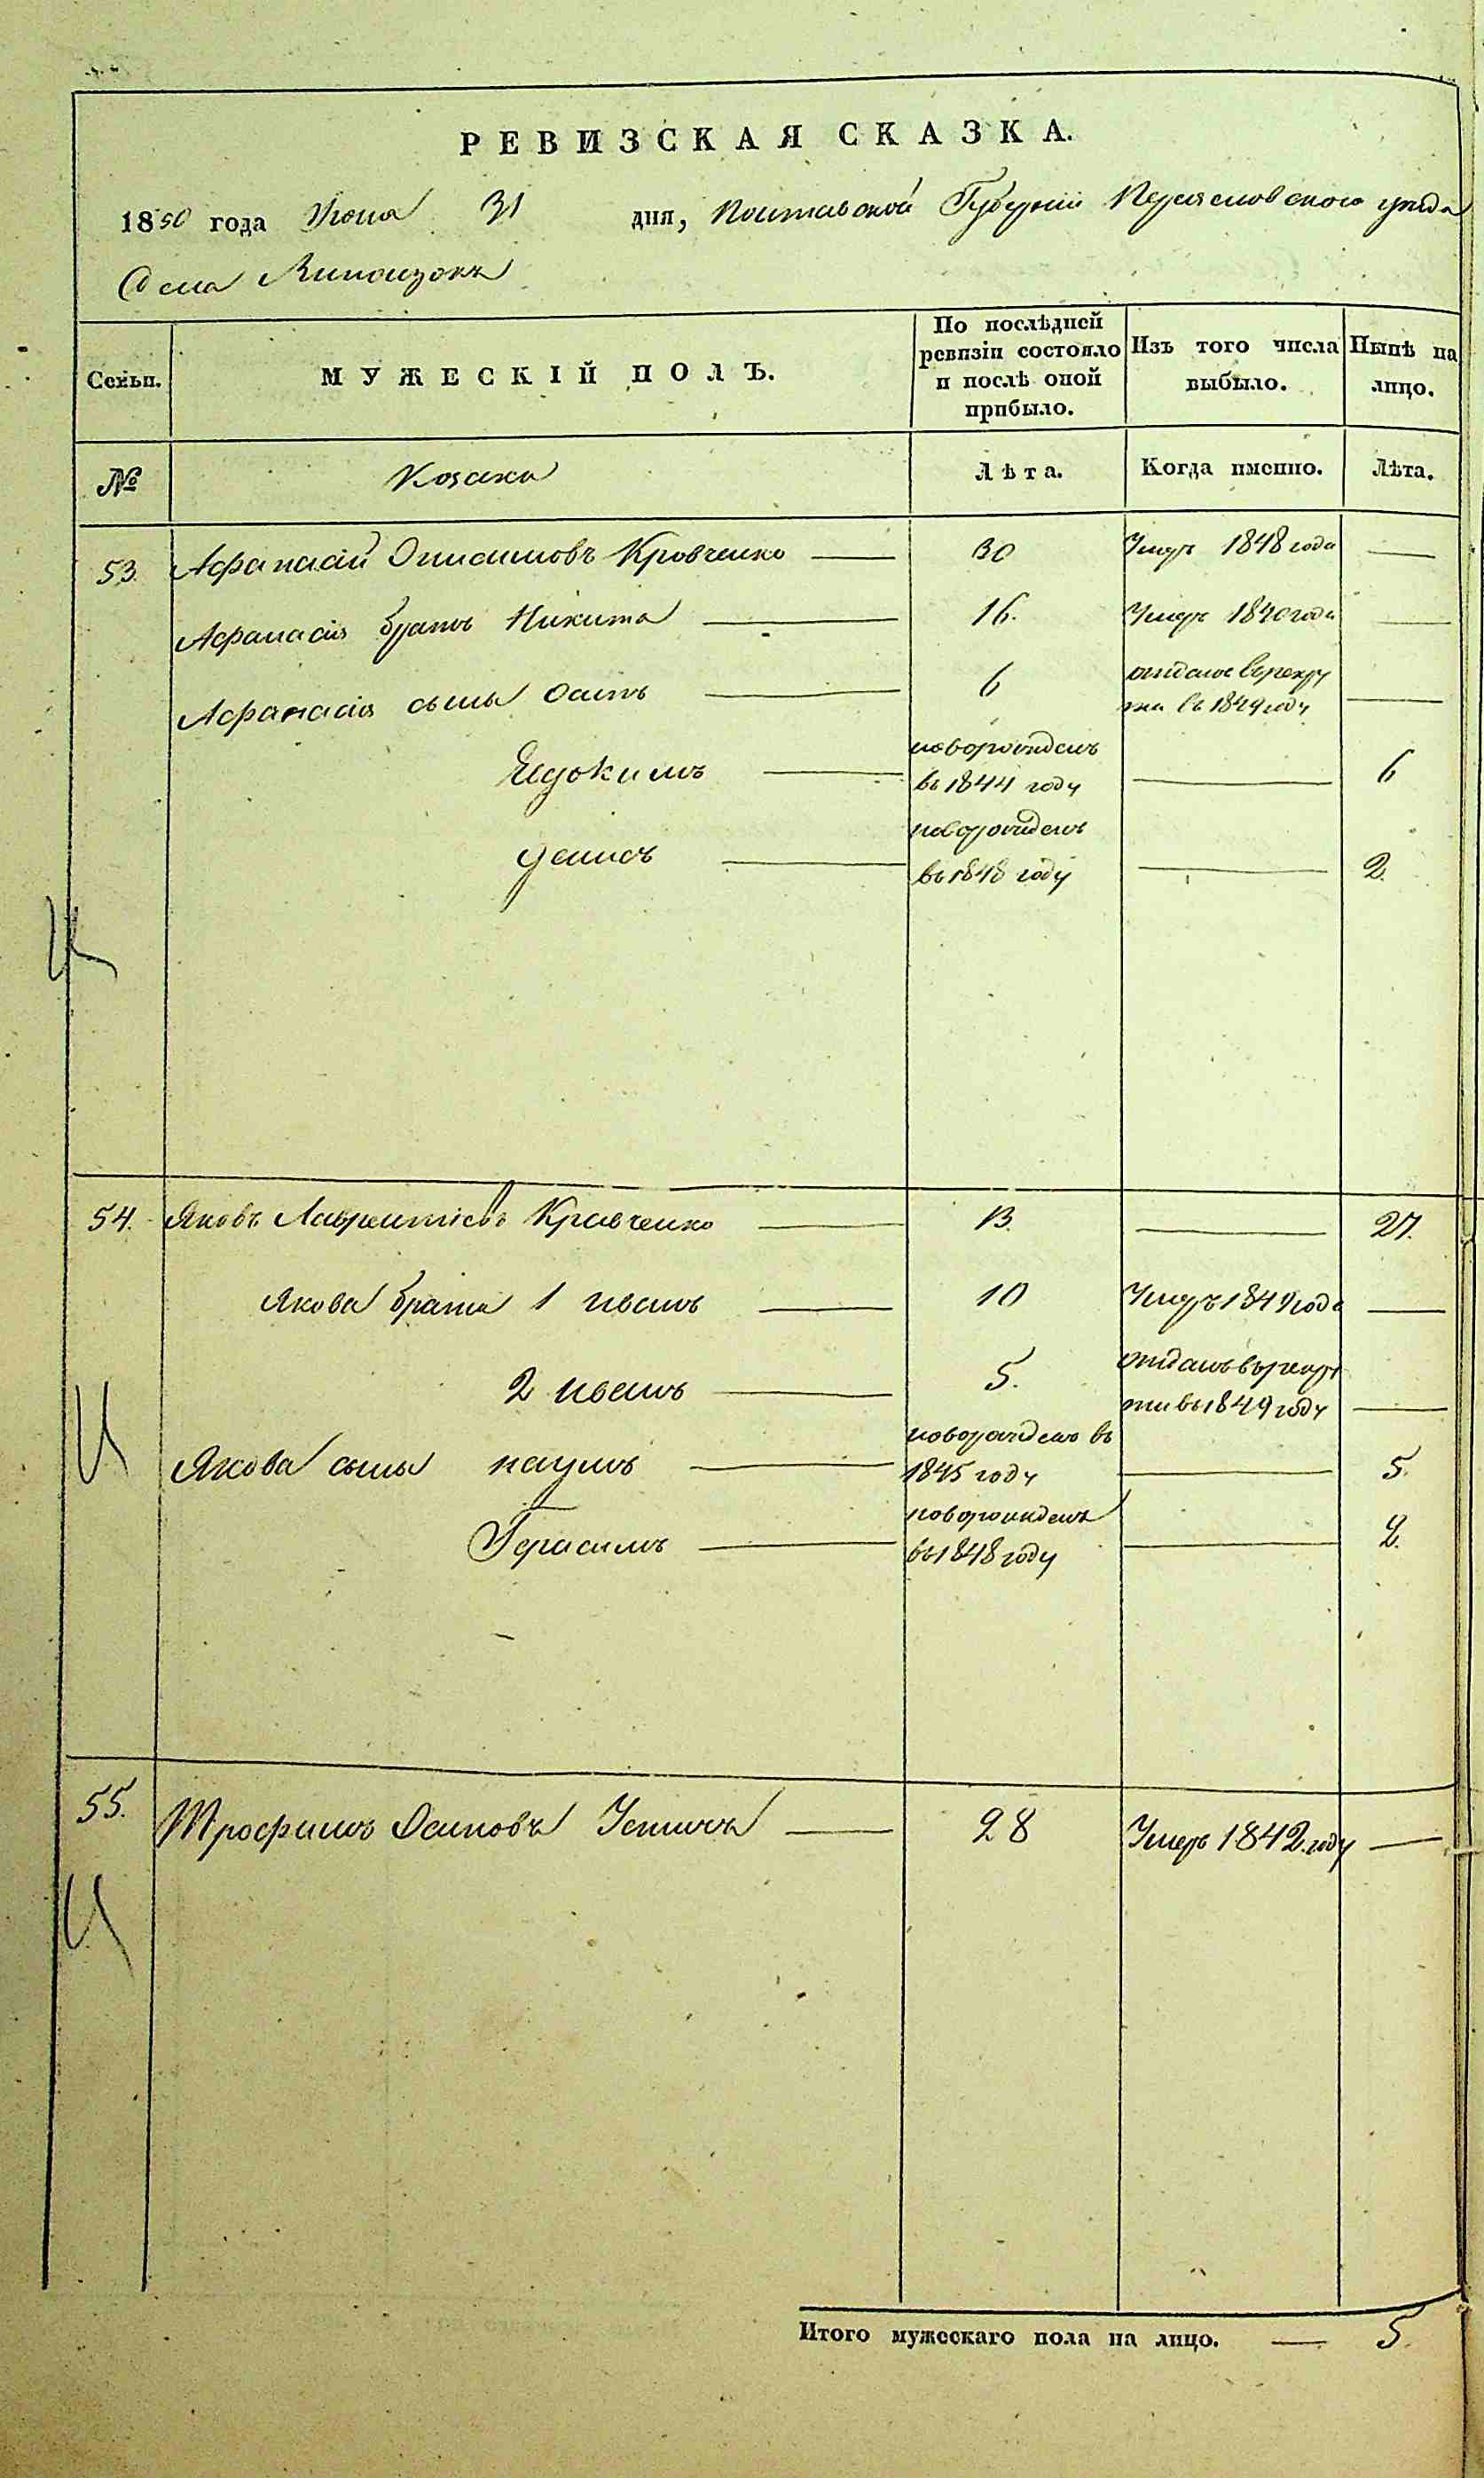 РЕВИЗСКАЯ СКАЗКА.
1850 года Июня 31 дня, Полтавской Губерніи Переяславского уезда
Села Липонзокъ
Семьи.
МУЖЕСКІЙ ПОЛЪ.
По послѣдней ревизіи состояло и послѣ оной прибыло.
Изъ того числа выбыло.
Нынѣ на лицо.
№ Козаки Лѣта. Когда именно. Лѣта.
53. Афанасій Кровченко — 30 Умеръ 1848 года —
Афанасія братъ Никита — 16. Умеръ 1840 года —
Афанасія сыны Осипъ — 6 отданъ в рекру
ты въ 1849 году —
Евдокимъ — новорожденъ
въ 1844 году — 6
Денисъ — новорожденъ
въ 1848 году — 2.
54. Яковъ Лаврентіевъ Кравченко — 13. — 27.
Якова братья 1 Иванъ — 10 Умеръ 1849 года —
2 Иванъ — 5. отданъ в рекру
ты въ 1849 году —
Якова сыны Наумъ — новорожденъ въ
1845 году — 5.
Герасимъ — новорожденъ
въ 1848 году — 2.
55. Трофимъ Осиповъ — 28 Умеръ 1842 году —
Итого мужескаго пола на лицо. — 5.